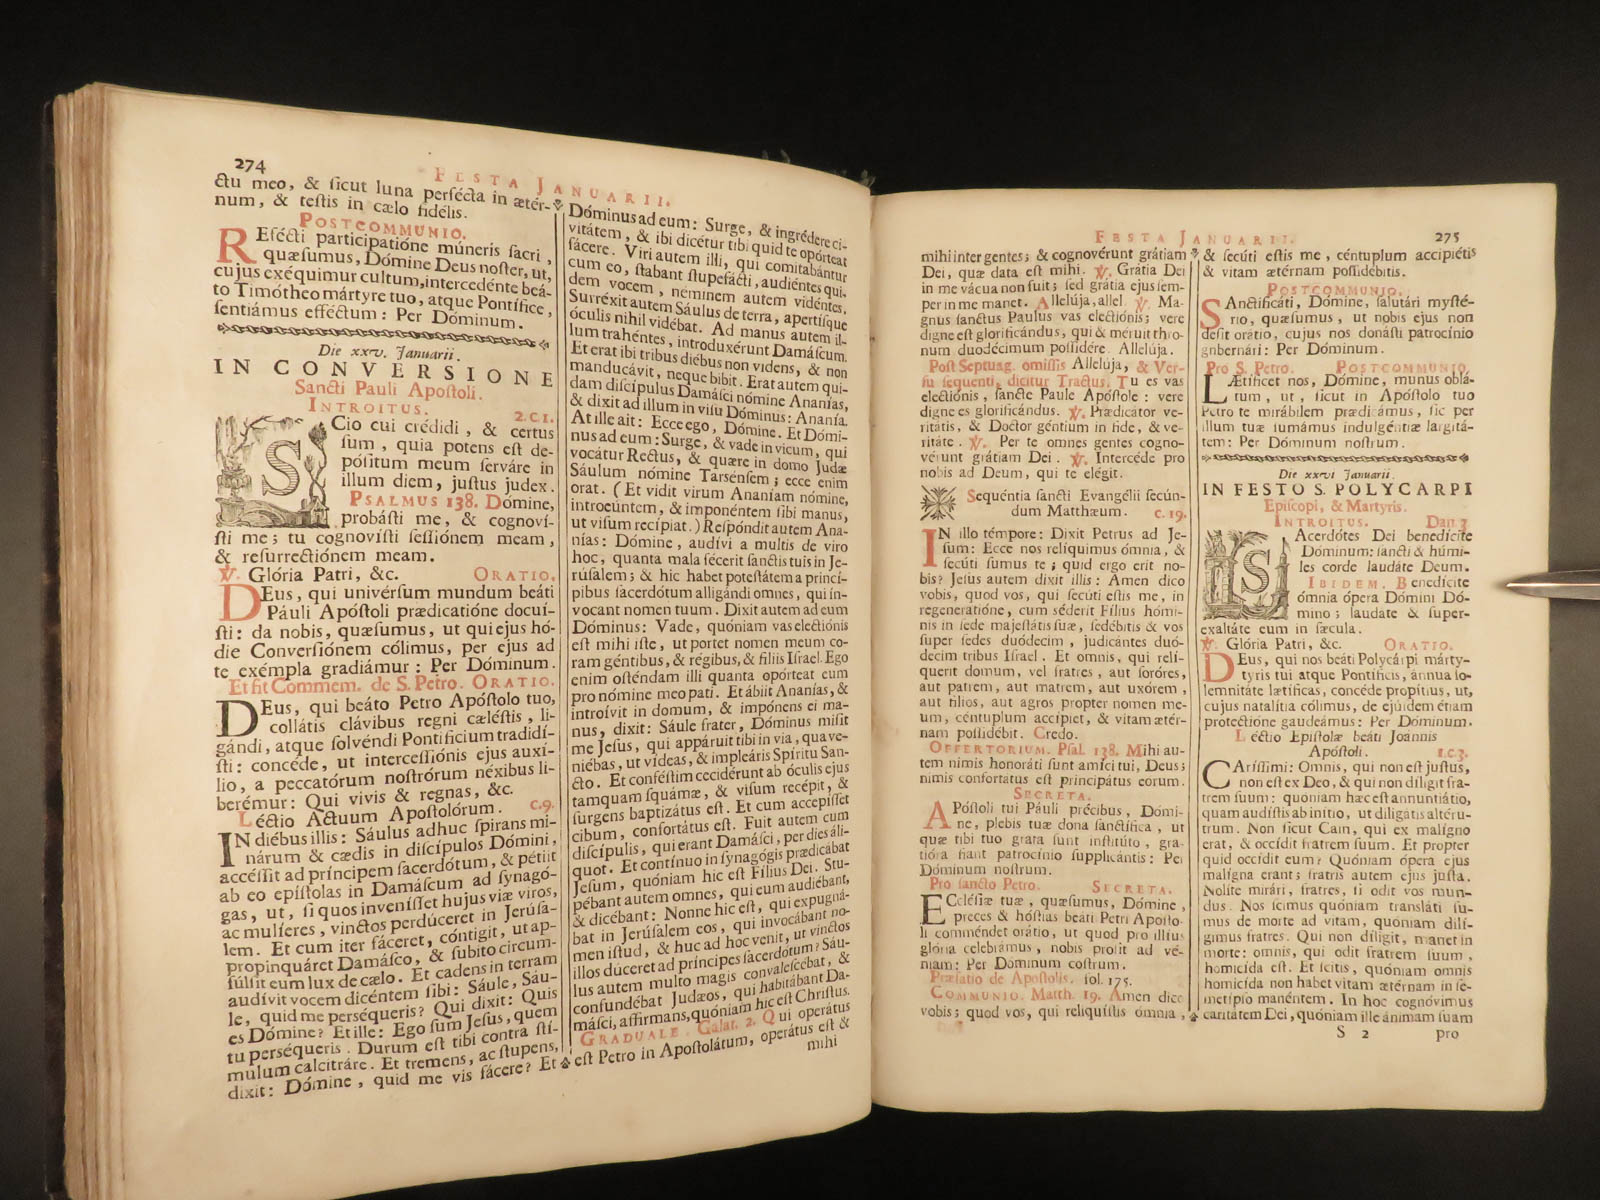 274
FESTA JANUARII.
ctu meo, & sicut luna perfécta in ætér-
num, & testis in cælo fidélis.
POSTCOMMUNIO.
REfécti participatióne múneris sacri,
quæsumus, Dómine Deus noster, ut,
cujus exéquimur cultum, intercedénte beá-
to Timótheo mártyre tuo, atque Pontífice,
sentiámus efféctum: Per Dóminum.
Die xxv. Januarii.
IN CONVERSIONE
Sancti Pauli Apostoli.
INTROITUS. 2.c.1.
SCio cui crédidi, & certus
sum, quia potens est de-
pósitum meum serváre in
illum diem, justus judex.
PSALMUS 138. Dómine,
probásti me, & cognoví-
sti me; tu cognovísti sessiónem meam,
& resurrectiónem meam.
℣. Glória Patri, &c. ORATIO.
DEus, qui univérsum mundum beáti
Páuli Apóstoli prædicatióne docuí-
sti: da nobis, quæsumus, ut qui ejus hó-
die Conversiónem cólimus, per ejus ad
te exémpla gradiámur: Per Dóminum.
Et fit Commem. de S. Petro. ORATIO.
DEus, qui beáto Petro Apóstolo tuo,
collátis clávibus regni cæléstis, li-
gándi, atque solvéndi Pontificium tradidí-
sti: concéde, ut intercessiónis ejus auxí-
lio, a peccatórum nostrórum néxibus li-
berémur: Qui vivis & regnas, &c.
Léctio Actuum Apostolórum. c.9.
IN diébus illis: Sáulus adhuc spirans mi-
nárum & cædis in discípulos Dómini,
accéssit ad príncipem sacerdótum, & pétiit
ab eo epístolas in Damáscum ad synagó-
gas, ut, si quos invenísset hujus viæ viros,
ac mulíeres, vinctos perdúceret in Jerúsa-
lem. Et cum iter fáceret, cóntigit, ut ap-
propinquáret Damásco, & súbito circum-
fúlsit eum lux de cælo. Et cadens in terram
audívit vocem dicéntem sibi: Sáule, Sáu-
le, quid me perséqueris? Qui dixit: Quis
es Dómine? Et ille: Ego sum Jesus, quem
tu perséqueris. Durum est tibi contra stí-
mulum calcitráre. Et tremens, ac stupens,
dixit: Dómine, quid me vis fácere? Et
Dóminus ad eum: Surge, & ingrédere ci-
vitátem, & ibi dicétur tibi quid te opórteat
fácere. Viri autem illi, qui comitabántur
cum eo, stabant stupefácti, audiéntes qui-
dem vocem, néminem autem vidéntes.
Surréxit autem Sáulus de terra, apertísque
óculis nihil vidébat. Ad manus autem il-
lum trahéntes, introduxérunt Damáscum.
Et erat ibi tribus diébus non videns, & non
manducávit, neque bibit. Erat autem qui-
dam discípulus Damásci nómine Ananías,
& dixit ad illum in visu Dóminus: Ananía.
At ille ait: Ecce ego, Dómine. Et Dómi-
nus ad eum: Surge, & vade in vicum, qui
vocátur Rectus, & quære in domo Judæ
Sáulum nómine Tarsénsem; ecce enim
orat. (Et vidit virum Ananíam nómine,
introeúntem, & imponéntem sibi manus,
ut visum recípiat.) Respóndit autem Ana-
nías: Dómine, audívi a multis de viro
hoc, quanta mala fécerit sanctis tuis in Je-
rúsalem; & hic habet potestátem a princí-
pibus sacerdótum alligándi omnes, qui in-
vocant nomen tuum. Dixit autem ad eum
Dóminus: Vade, quóniam vas electiónis
est mihi iste, ut portet nomen meum co-
ram géntibus, & régibus, & filiis Israel. Ego
enim osténdam illi quanta opórteat eum
pro nómine meo pati. Et ábiit Ananías, &
introívit in domum, & impónens ei ma-
nus, dixit: Sáule frater, Dóminus misit
me Jesus, qui appáruit tibi in via, qua ve-
niébas, ut vídeas, & impleáris Spíritu San-
cto. Et conféstim cecidérunt ab óculis ejus
tamquam squámæ, & visum recépit, &
surgens baptizátus est. Et cum accepísset
cibum, confortátus est. Fuit autem cum
discípulis, qui erant Damásci, per dies áli-
quot. Et contínuo in synagógis prædicábat
Jesum, quóniam hic est Fílius Dei. Stu-
pébant autem omnes, qui eum audiébant,
& dicébant: Nonne hic est, qui expugná-
bat in Jerúsalem eos, qui invocábant no-
men istud, & huc ad hoc venit, ut vinctos
illos dúceret ad príncipes sacerdótum? Sáu-
lus autem multo magis convalescébat, &
confundébat Judæos, qui habitábant Da-
másci, affirmans, quóniam hic est Christus.
GRADUALE. Galat. 2. Qui operátus
est Petro in Apostolátum, operátus est &
mihi
FESTA JANUARII.
275
mihi inter gentes; & cognovérunt grátiam
Dei, quæ data est mihi. ℣. Grátia Dei
in me vácua non fuit; sed grátia ejus sem-
per in me manet. Allelúja, allel. ℣. Ma-
gnus sanctus Paulus vas electiónis; vere
digne est glorificándus, qui & méruit thro-
num duodécimum possidére. Allelúja.
Post Septuag. omissis Allelúja, & Ver-
su sequenti, dicitur Tractus. Tu es vas
electiónis, sancte Paule Apóstole: vere
digne es glorificándus. ℣. Prædicátor ve-
ritátis, & Doctor géntium in fide, & ve-
ritáte. ℣. Per te omnes gentes cogno-
vérunt grátiam Dei. ℣. Intercéde pro
nobis ad Deum, qui te elégit.
Sequéntia sancti Evangélii secún-
dum Matthæum. c. 19.
IN illo témpore: Dixit Petrus ad Je-
sum: Ecce nos relíquimus ómnia, &
secúti sumus te; quid ergo erit no-
bis? Jesus autem dixit illis: Amen dico
vobis, quod vos, qui secúti estis me, in
regeneratióne, cum séderit Fílius hómi-
nis in sede majestátis suæ, sedébitis & vos
super sedes duódecim, judicántes duó-
decim tribus Israel. Et omnis, qui relí-
querit domum, vel fratres, aut soróres,
aut patrem, aut matrem, aut uxórem,
aut filios, aut agros propter nomen me-
um, céntuplum accípiet, & vitam ætér-
nam possidébit. Credo.
OFFERTORIUM. Psal. 138. Mihi au-
tem nimis honoráti sunt amíci tui, Deus;
nimis confortatus est principátus eorum.
SECRETA.
APóstoli tui Páuli précibus, Dómi-
ne, plebis tuæ dona sanctífica, ut
quæ tibi tuo grata sunt institúto, gra-
tióra fiant patrocínio supplicántis: Per
Dóminum nostrum.
Pro sancto Petro. SECRETA.
ECclésiæ tuæ, quæsumus, Dómine,
preces & hóstias beáti Petri Apósto-
li comméndet orátio, ut quod pro illíus
glória celebrámus, nobis prosit ad vé-
niam: Per Dóminum nostrum.
Præfatio de Apostolis. fol. 175.
COMMUNIO. Matth. 19. Amen dico
vobis; quod vos, qui reliquístis ómnia,
& secúti estis me, céntuplum accipiétis
& vitam ætérnam possidébitis.
POSTCOMMUNIO.
SAnctificáti, Dómine, salutári mysté-
rio, quæsumus, ut nobis ejus non
desit orátio, cujus nos donásti patrocínio
gubernári: Per Dóminum.
Pro S. Petro. POSTCOMMUNIO.
LÆtíficet nos, Dómine, munus oblá-
tum, ut, sicut in Apóstolo tuo
Petro te mirábilem prædicámus, sic per
illum tuæ sumámus indulgéntiæ largitá-
tem: Per Dóminum nostrum.
Die xxvi Januarii.
IN FESTO S. POLYCARPI
Episcopi, & Martyris.
INTROITUS. Dan 3
SAcerdótes Dei benedícite
Dóminum: sancti & húmi-
les corde laudáte Deum.
IBIDEM. Benedícite
ómnia ópera Dómini Dó-
mino; laudáte & super-
exaltáte eum in sæcula.
℣. Glória Patri, &c. ORATIO.
DEus, qui nos beáti Polycárpi márty-
tyris tui atque Pontíficis, ánnua so-
lemnitáte lætíficas, concéde propítius, ut,
cujus natalítia cólimus, de ejúsdem étiam
protectióne gaudeámus: Per Dóminum.
Léctio Epístolæ beáti Joannis
Apóstoli. 1.c.3.
CAríssimi: Omnis, qui non est justus,
non est ex Deo, & qui non díligit fra-
trem suum: quóniam hæc est annuntiátio,
quam audístis ab inítio, ut diligátis altéru-
trum. Non sicut Cain, qui ex malígno
erat, & occídit fratrem suum. Et propter
quid occídit eum? Quóniam ópera ejus
malígna erant; fratris autem ejus justa.
Nolíte mirári, fratres, si odit vos mun-
dus. Nos scimus quóniam transláti su-
mus de morte ad vitam, quóniam dilí-
gimus fratres. Qui non díligit, manet in
morte: omnis, qui odit fratrem suum,
homicída est. Et scitis, quóniam omnis
homicída non habet vitam ætérnam in se-
metípso manéntem. In hoc cognóvimus
caritátem Dei, quóniam ille ánimam suam
S 2
pro